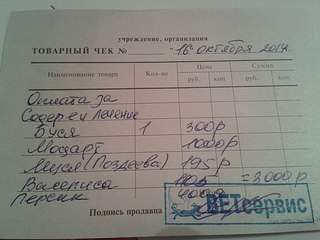 учреждение, организация
ТОВАРНЫЙ ЧЕК № - 16 октября 2014.
Наименование товара Кол-во Цена Сумма
руб. коп руб. коп
Оплата за
Содер е и лечение
Буся 1 300р
Моцарт 1000р
Муся (Поздеева) 195р
Василиса =3000р
Персик 400р
ВЕТсервис
Подпись продавца